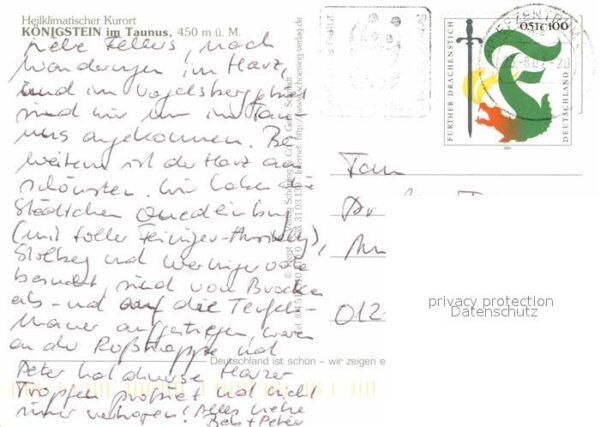 Heilklimatischer Kurort
KÖNIGSTEIN im Taunus, 450 m ü. M.
Liebe Zellers, nach
Wanderungen im Harz
und im Vogelsberg
sind wir nun im Tau-
nus angekommen. Bei
weitem ist der Harz am
schönsten. Wir haben die
Städtchen Quedlinburg
(mit toller Feininger-Ausstellung),
Stolberg und Wernigerode
besucht, sind von Brocken
ab- und auf die Teufels-
mauer aufgestiegen, waren
an der Roßtrappe und
Peter hat diverse Harzer
Tropfen probiert und nicht
immer vertragen! Alles Liebe
Beb + Peter
Deutschland ist schön – wir zeigen e
FURTHER DRACHENSTICH
0,51€ 100
DEUTSCHLAND
Fam
Dr
012
privacy protection
Datenschutz